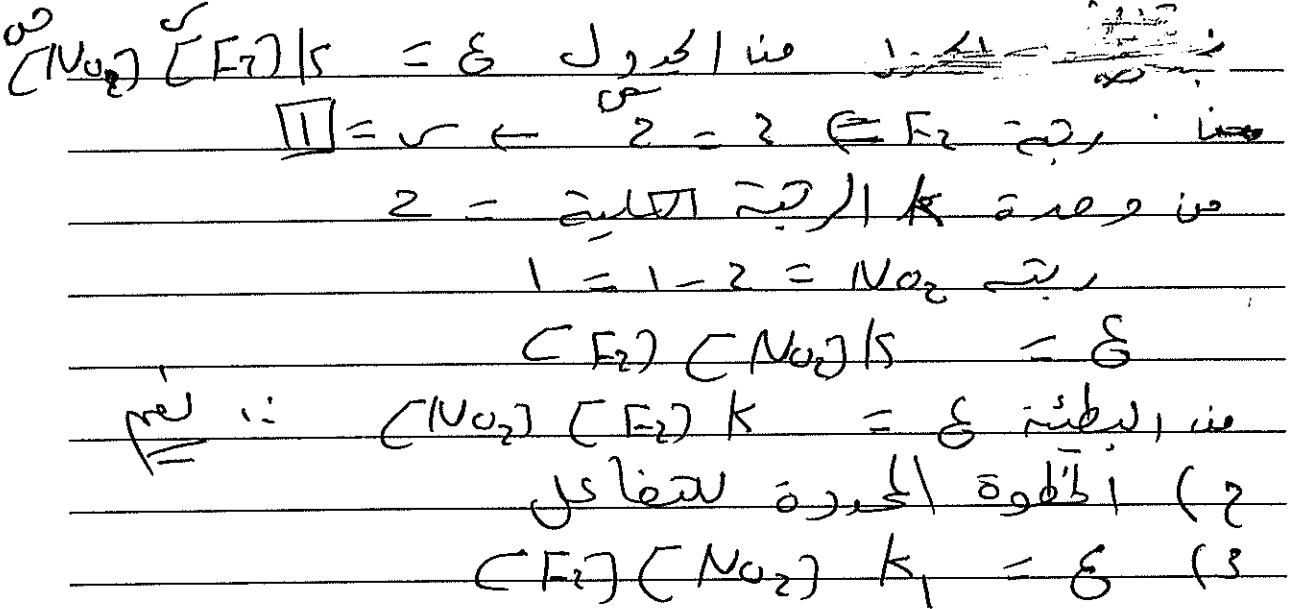 من الجدول ع = k[F2]س [NO2]ص
رتبة F2 ⇐ 2 = 2س ← س = 1
من وحدة k الرتبة الكلية = 2
رتبة NO2 = 2 - 1 = 1
ع = k[NO2] [F2]
من البطيئة ع = k [F2] [NO2] ∴ نعم
2) الخطوة المحددة للتفاعل
3) ع = k1 [NO2] [F2]